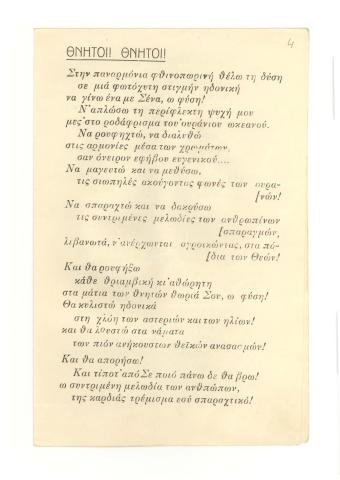 4
ΘΝΗΤΟΙ! ΘΝΗΤΟΙ!
Στην παναρμόνια φθινοπωρινή θέλω τη δύση
σε μιά φωτόχυτη στιγμήν ηδονική
να γίνω ένα με Σένα, ω φύση!
Ν'απλώσω τη περίφλεκτη ψυχή μου
μες'στο ροδάφρισμα του'ουράνιου ωκεανού.
Να ρουφηχτώ, να διαλυθώ
στις αρμονίες μέσα των χρωμάτων,
σαν όνειρον εφήβου ευγενικού....
Να μαγευτώ και να μεθύσω,
τις σιωπηλές ακούγοντας φωνές των ουρα-
[νών!
Να σπαραχτώ και να δακρύσω
τις συντριμένες μελωδίες των ανθρωπίνων
[σπαραγμών,
λιβανωτά, ν'ανέρχωνται αγροικώντας, στα πό-
[δια των Θεών!
Και θα ρουφήξω
κάθε θριαμβική κι'αθώρητη
στα μάτια των θνητών θωριά Σου, ω φύση!
Θα κυλιστώ ηδονικά
στη χλόη των αστεριών και των ηλίων!
και θα λουστώ στα νάματα
των πιόν ανήκουστων θεϊκών ανασασμών!
Και θα απορήσω!
Και τίποτ'από Σε ποιό πάνω δε θα βρω!
ω συντριμένη μελωδία των ανθπώπων,
της καρδιάς τρέμισμα εσύ σπαραχτικό!